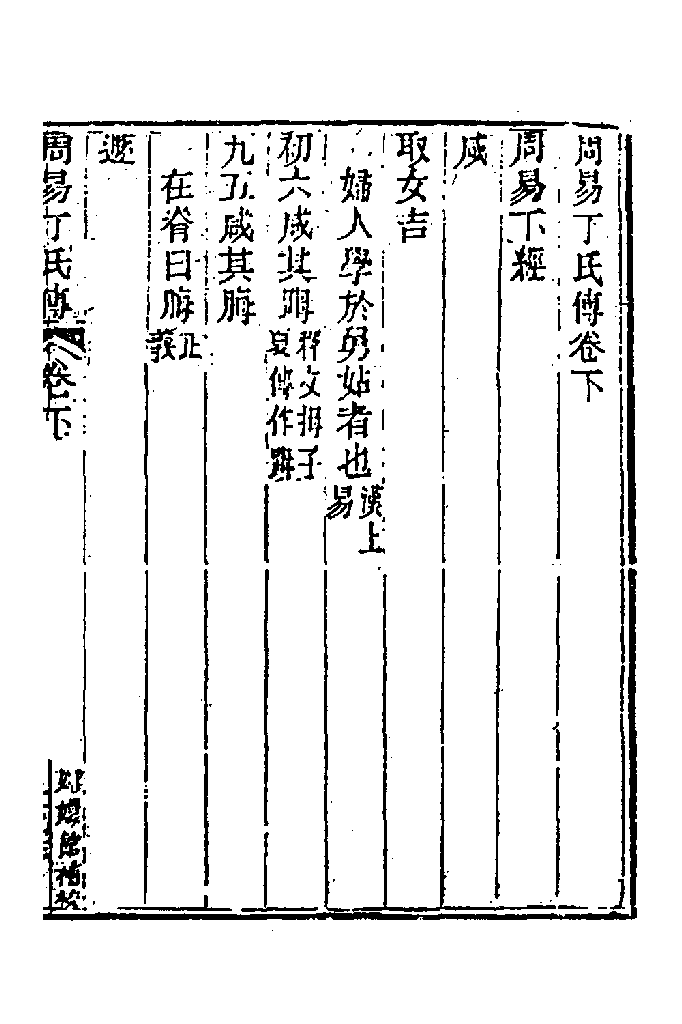 周易丁氏傳卷下
周易下經
咸
取女吉
婦人學於舅姑者也漢上易
初六咸其𨈛釋文拇子夏傳作𨈛
九五咸其脢
在脊曰脢正義
遯
周易丁氏傳 卷下